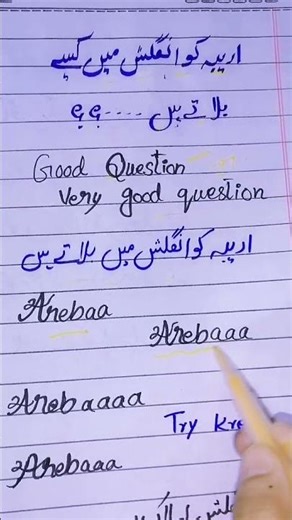 اریبہ کو انگلش میں کیسے
بلاتے ہیں ....؟؟
Good Question
very good question
اریبہ کو انگلش میں بلاتے ہیں
Arebaa
Arebaaa
Arebaaaa
Try Kre
Arebaaa